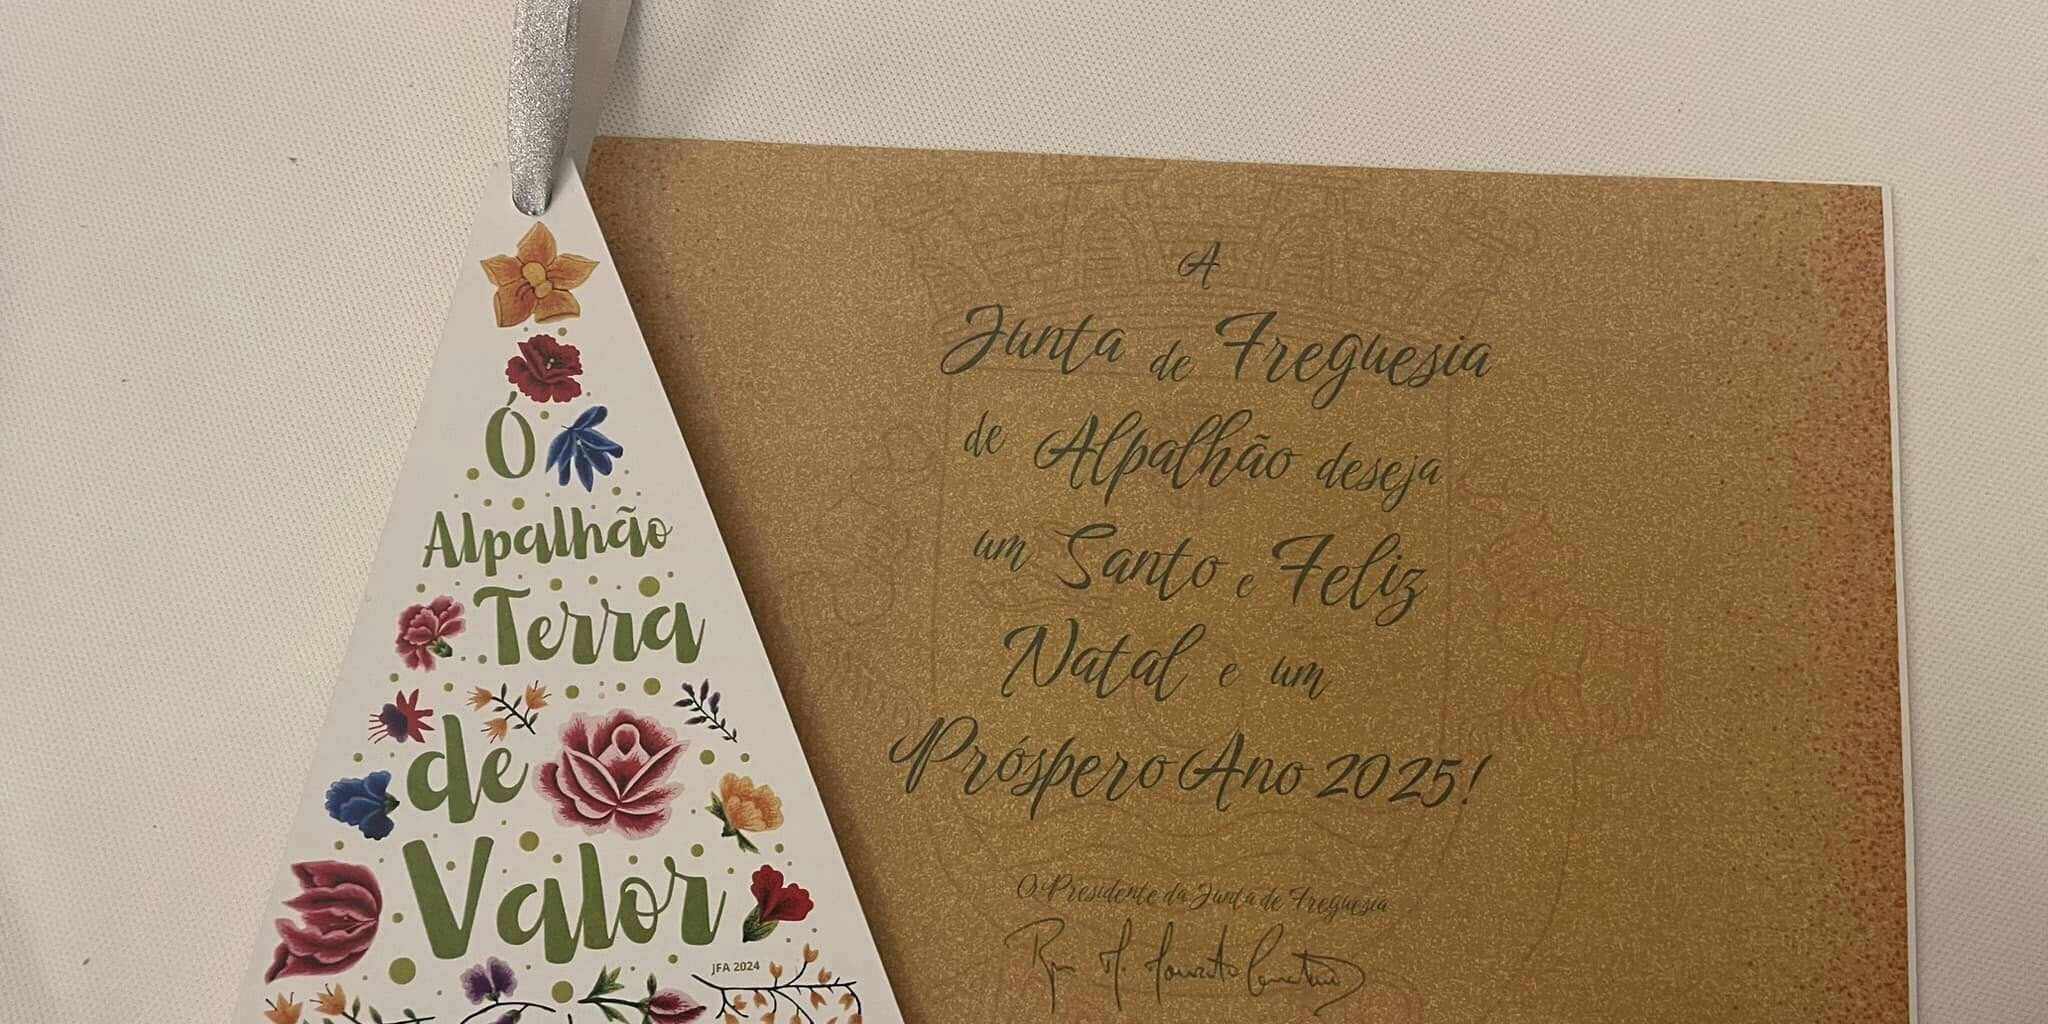 Ó
Alpalhão
Terra
de
Valor
JFA 2024
A
Junta de Freguesia
de Alpalhão deseja
um Santo e Feliz
Natal e um
Próspero Ano 2025!
O Presidente da Junta de Freguesia